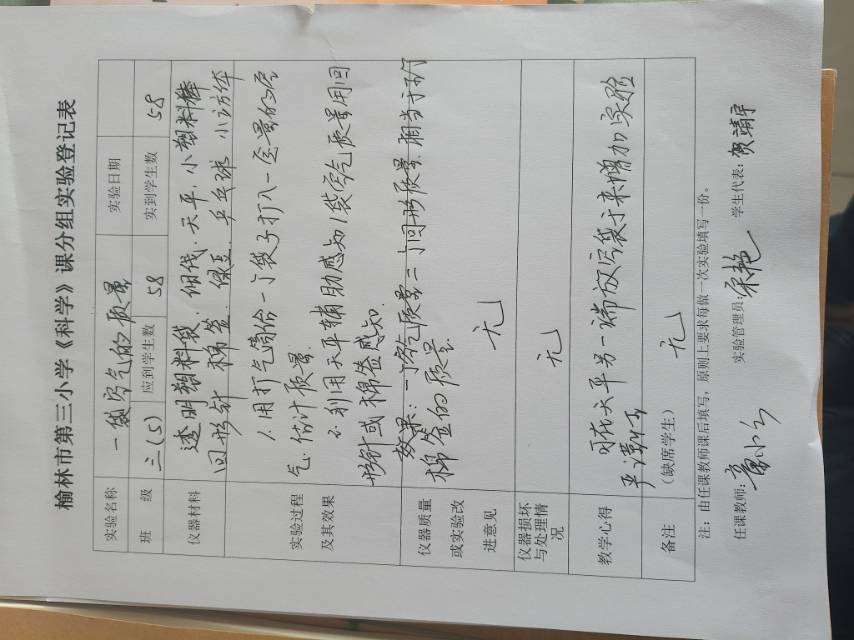 榆林市第三小学《科学》课分组实验登记表
实验名称 一袋空气的质量 实验日期
班 级 三(5) 应到学生数 58 实到学生数 58
仪器材料 透明塑料袋、细线、天平、小塑料棒
回形针 棉签、绿豆、乒乓球 小方体
实验过程及其效果
1.用打气筒给一个袋子打入一定量的空
气.估计质量.
2.利用天平辅助感知1袋空气质量用回
形针或棉签感知.
效果:一个空气质量=一个回形质量.相当于
棉签的质量
仪器质量或实验改进意见 无
仪器损坏与处理情况 无
教学心得 可在天平另一端放空袋子来增加实验
严谨
备注 (缺席学生) 无
注:由任课教师课后填写,原则上要求每做一次实验填写一份。
任课教师: 实验管理员: 宋艳 学生代表: 贺靖宇